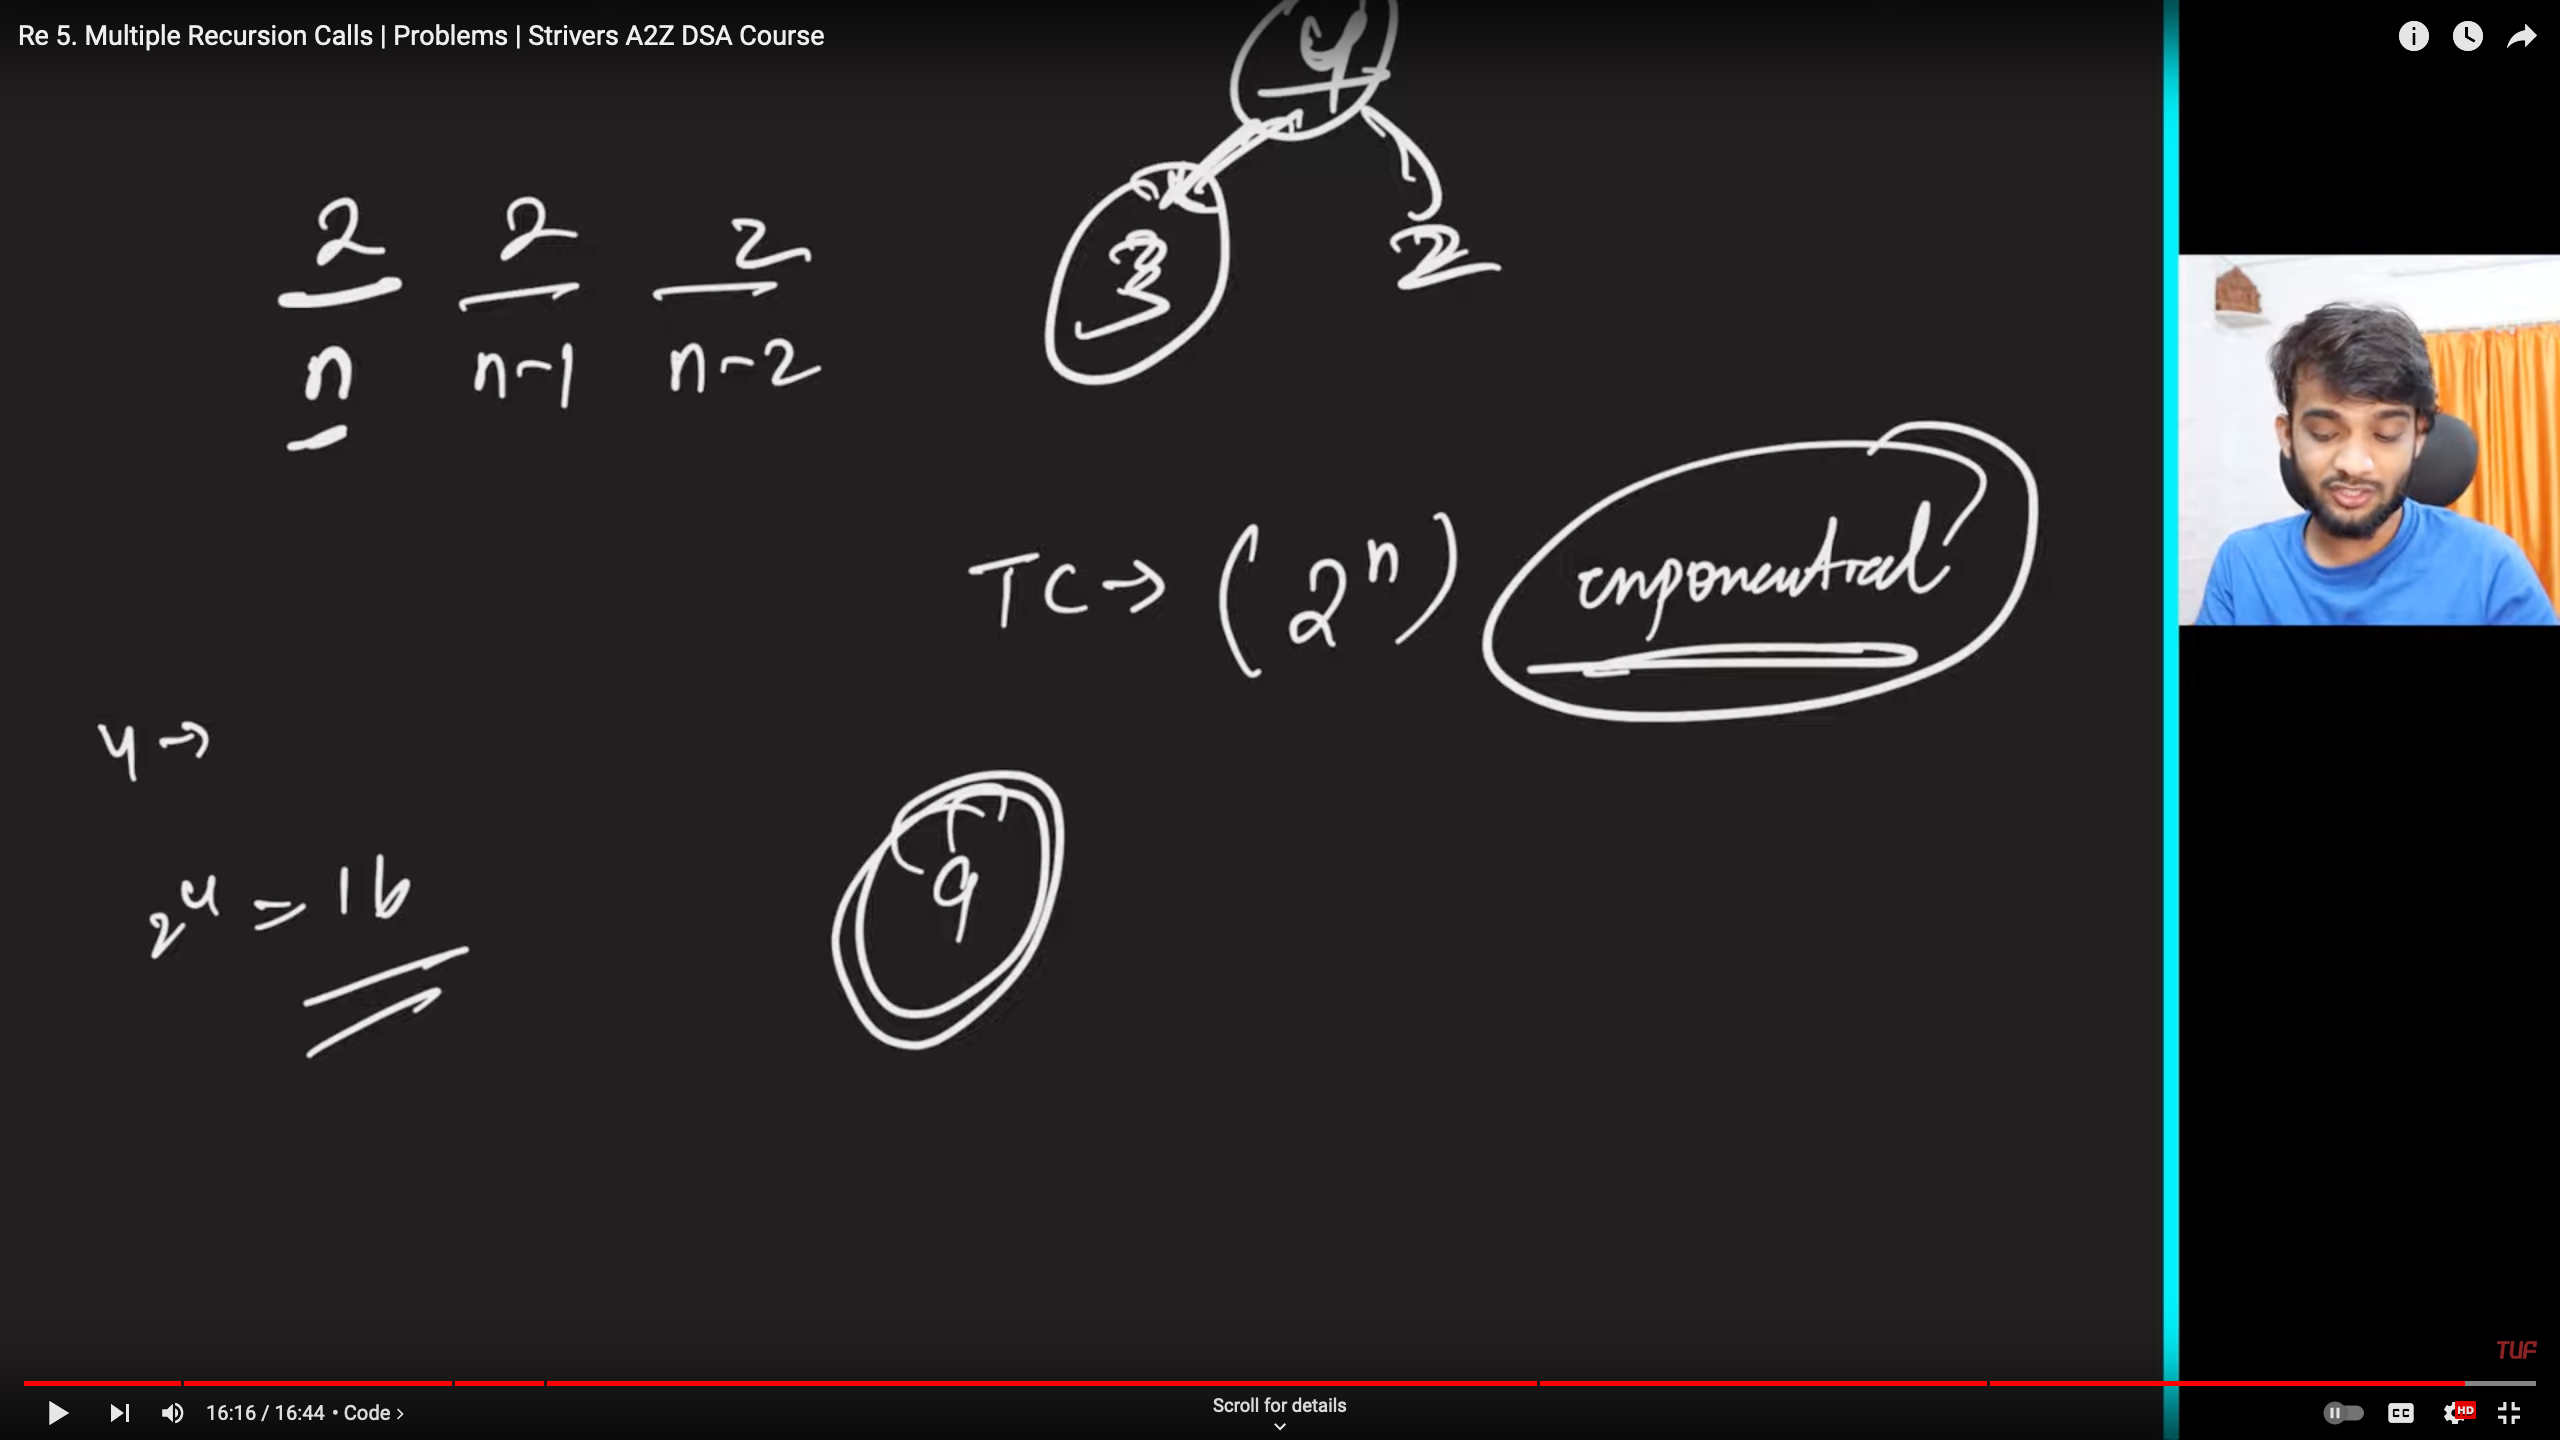 Re 5. Multiple Recursion Calls | Problems | Strivers A2Z DSA Course
4
3 2
2 2 2
n n-1 n-2
TC → (2^n) exponential
4 →
2^4 = 16
9
TUF
16:16 / 16:44 • Code ›
Scroll for details
CC HD